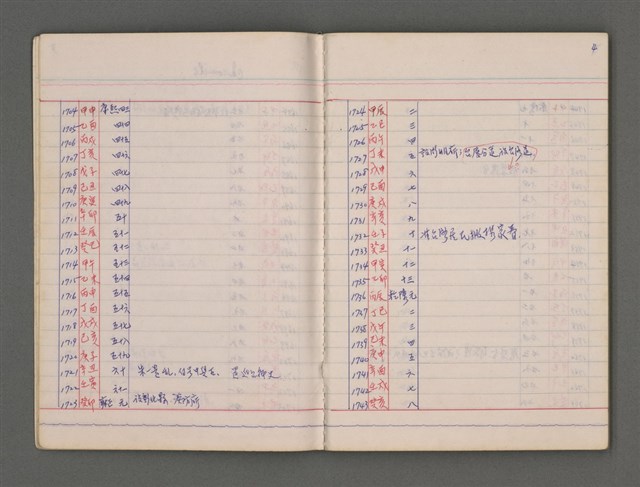 1704 甲申 康熙 四三
1705 乙酉 四四
1706 丙戌 四五
1707 丁亥 四六
1708 戊子 四七
1709 己丑 四八
1710 庚寅 四九
1711 辛卯 五十
1712 壬辰 五一
1713 癸巳 五二
1714 甲午 五三
1715 乙未 五四
1716 丙申 五五
1717 丁酉 五六
1718 戊戌 五七
1719 己亥 五八
1720 庚子 五九
1721 辛丑 六十 朱一貴乱
1722 壬寅 六一
1723 癸卯 雍正 元
4
1724 甲辰 二
1725 乙巳 三
1726 丙午 四
1727 丁未 五
1728 戊申 六
1729 己酉 七
1730 庚戌 八
1731 辛亥 九
1732 壬子 十
1733 癸丑 十一
1734 甲寅 十二
1735 乙卯 十三
1736 丙辰 乾隆元
1737 丁巳 二
1738 戊午 三
1739 己未 四
1740 庚申 五
1741 辛酉 六
1742 壬戌 七
1743 癸亥 八